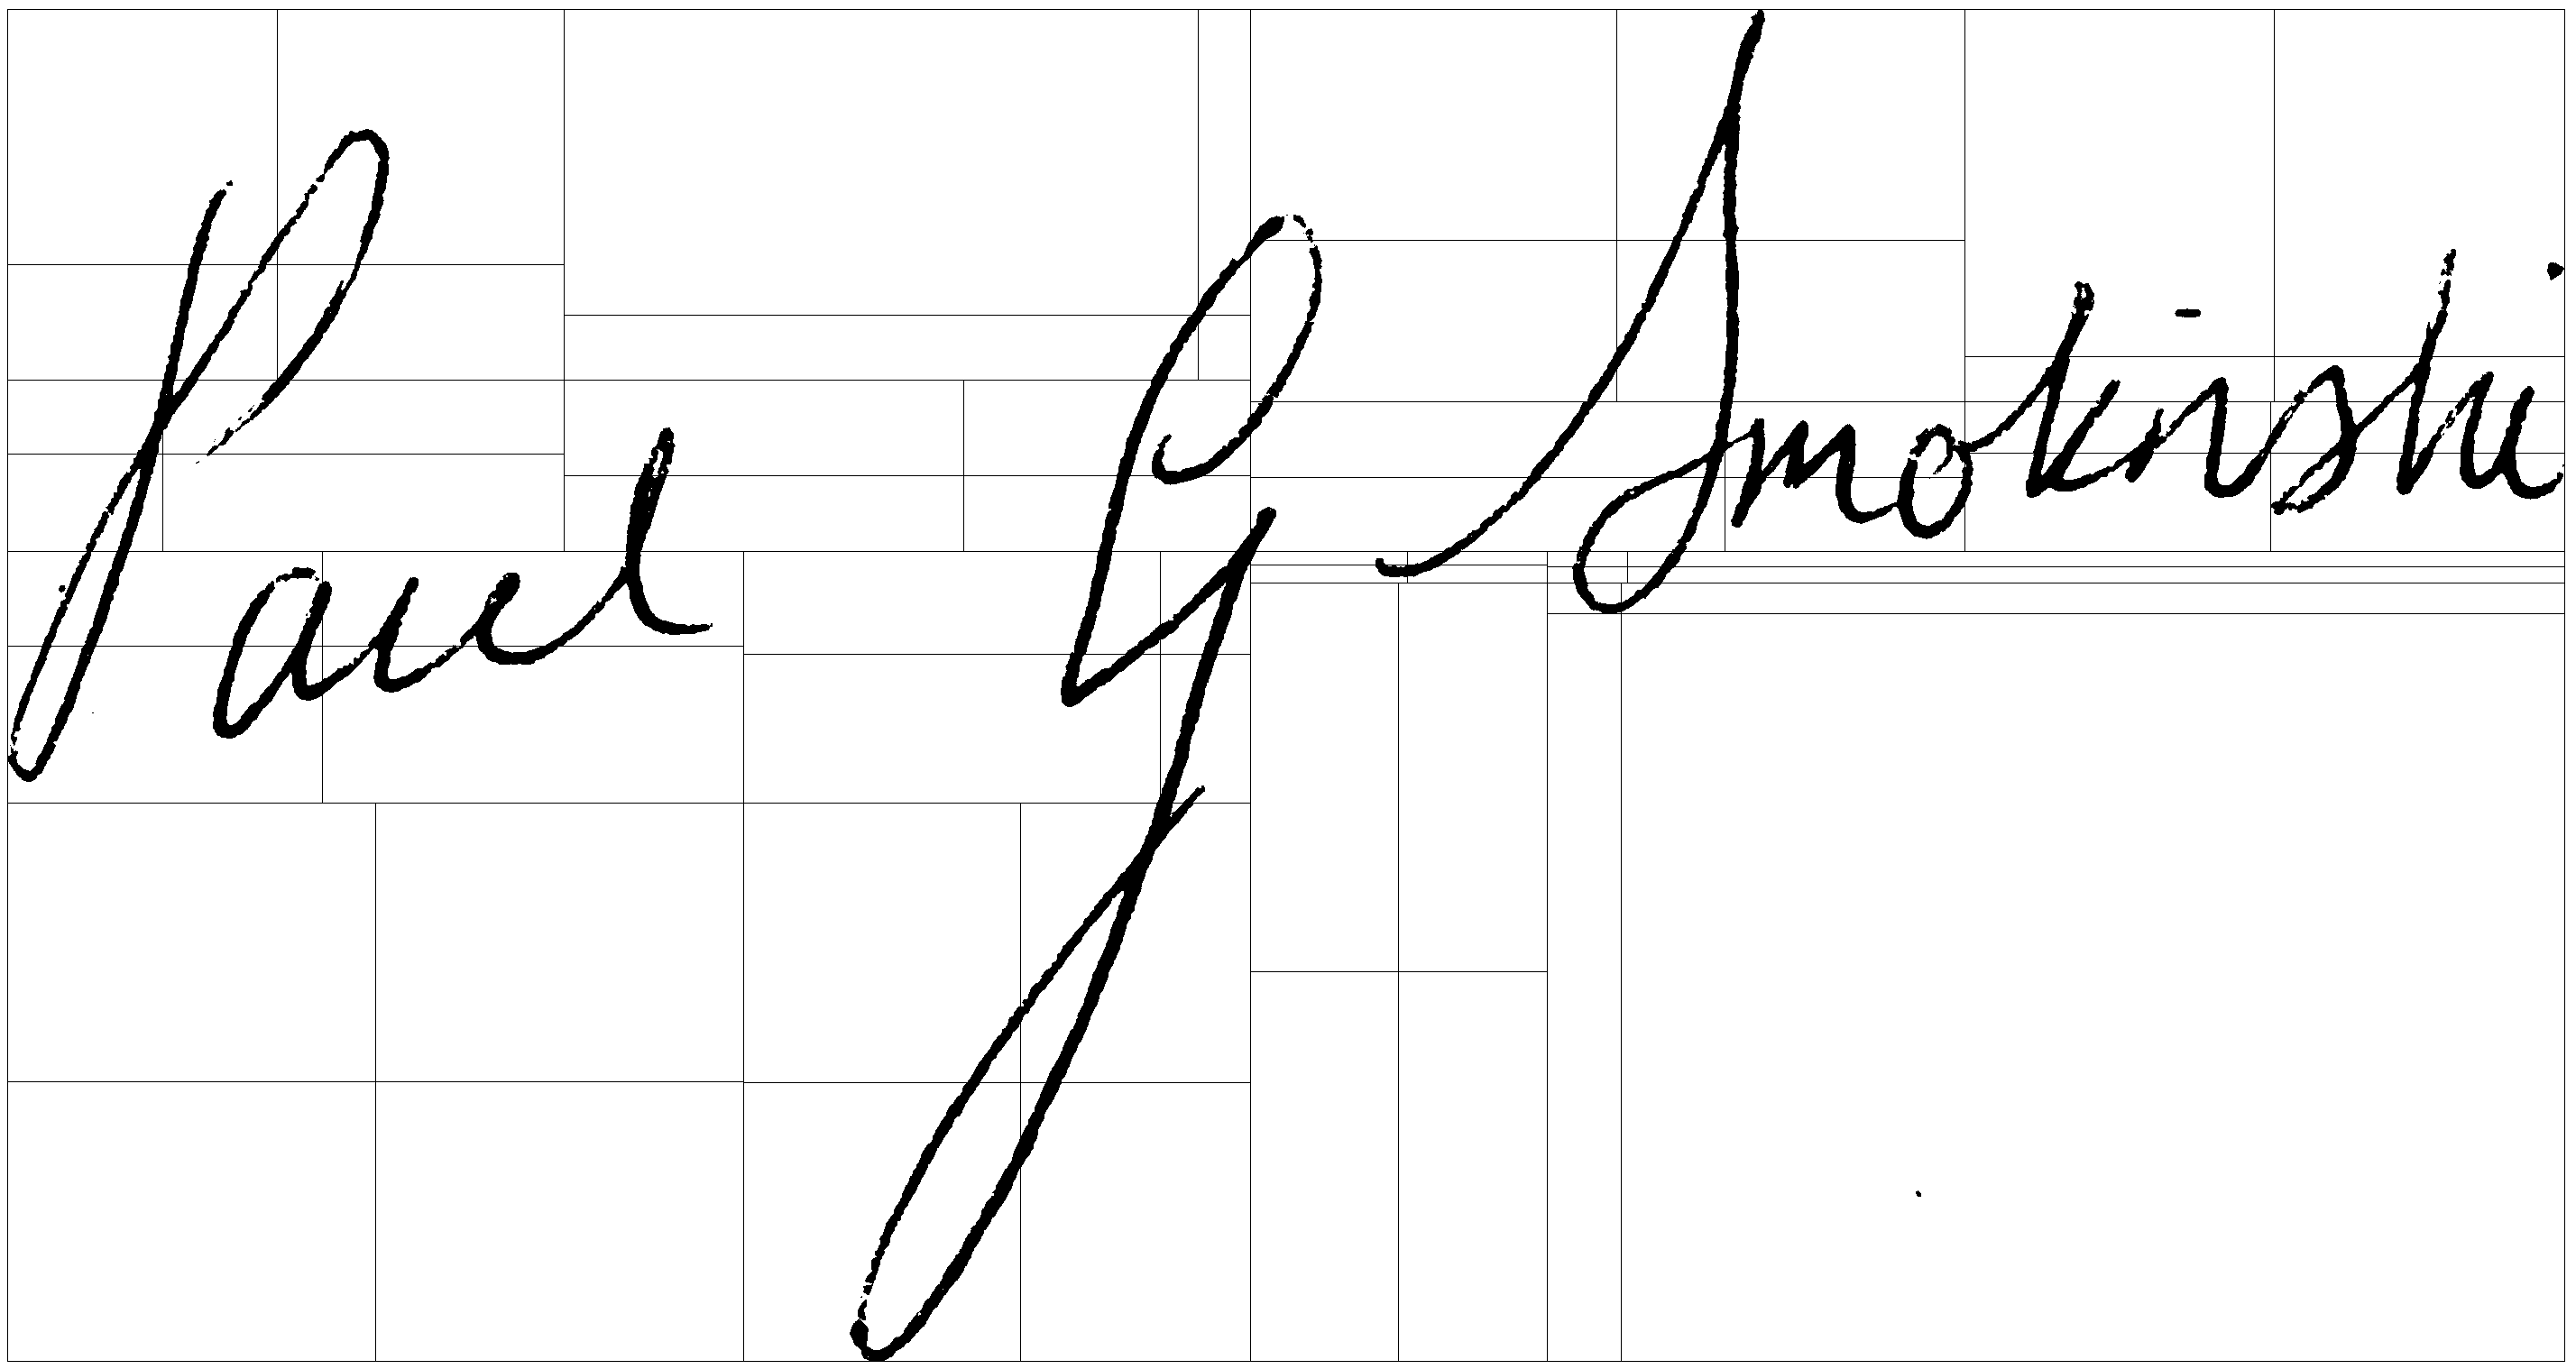 Paul G Smokinski